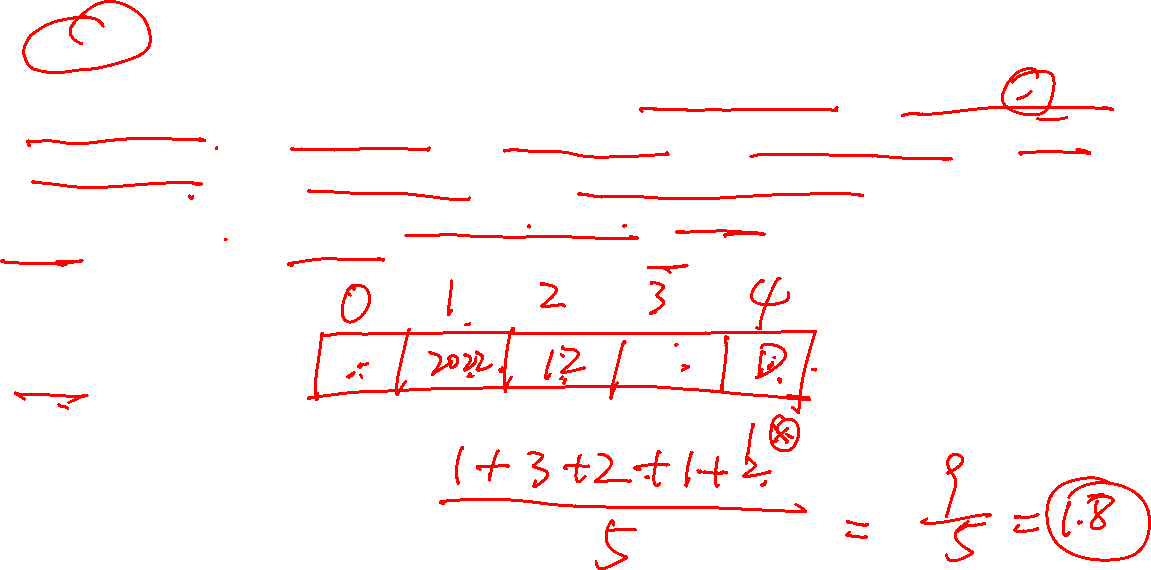 0 1 2 3 4
2022 12 D
1+3+2+1+2
5
= 9/5 = 1.8